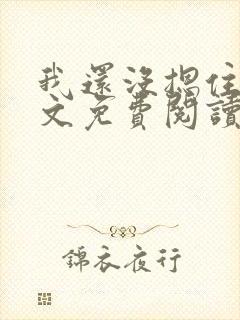 我還沒摁住
文免費閱讀
錦衣夜行